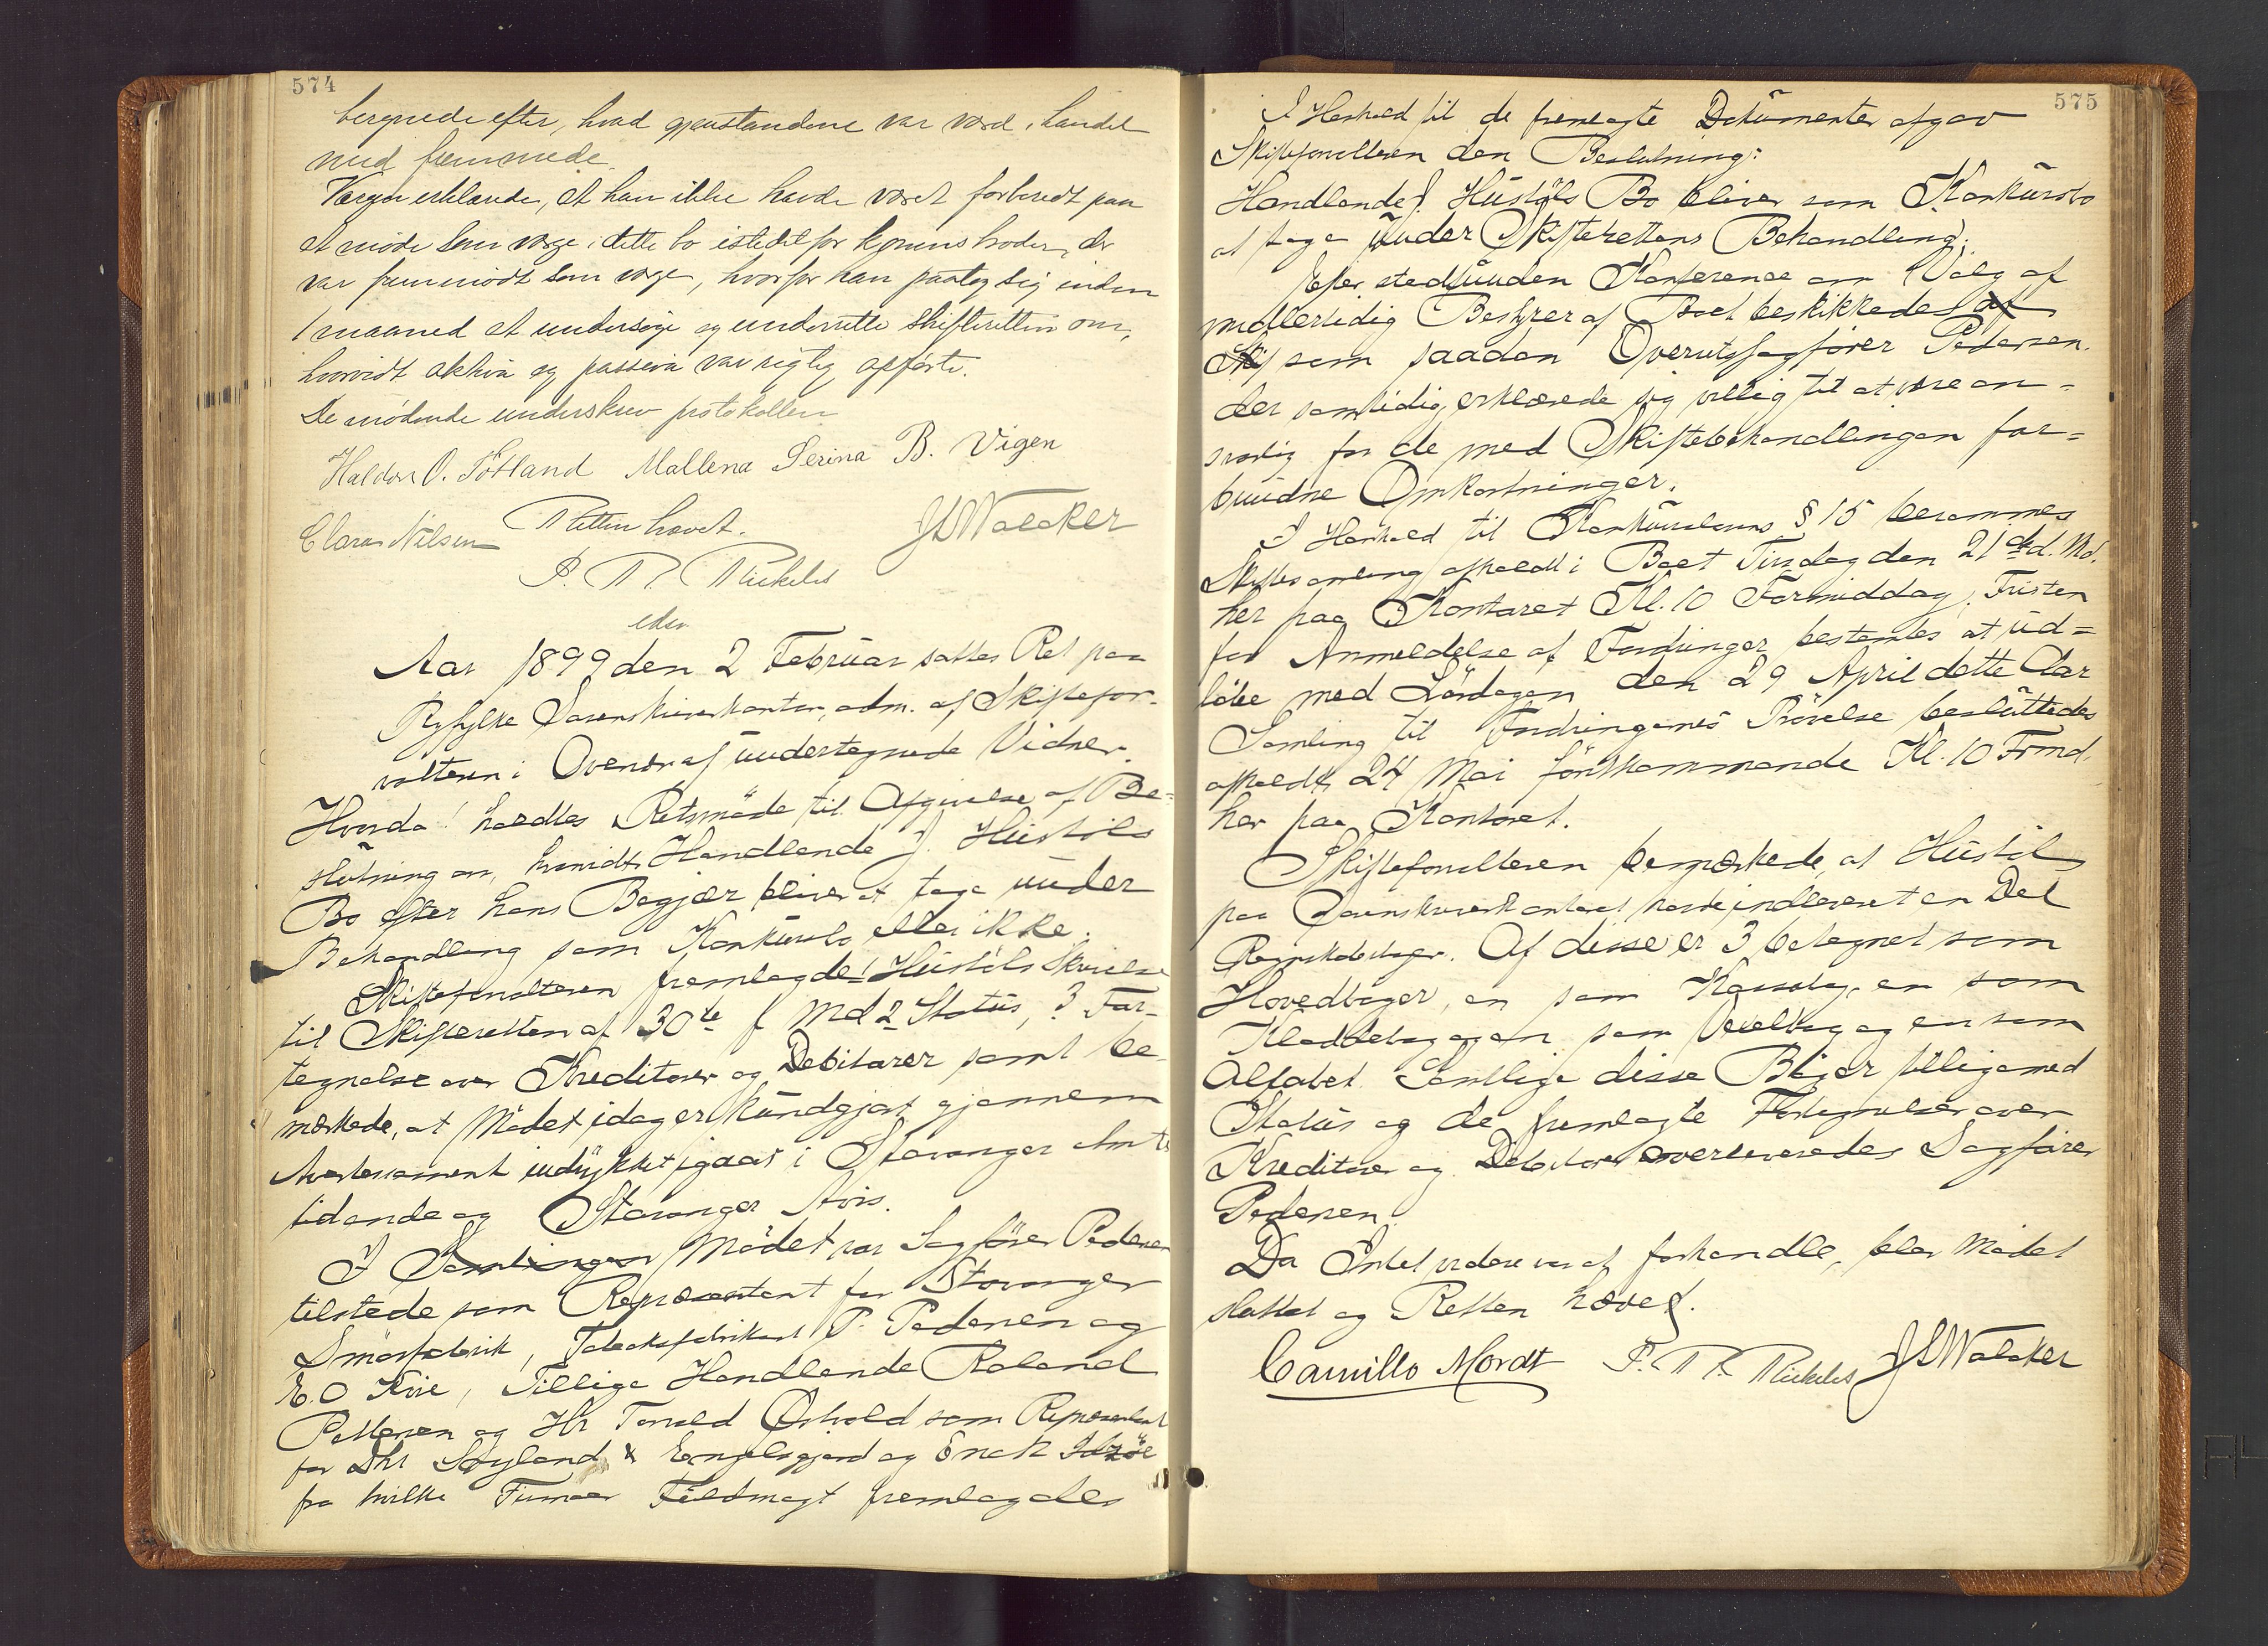 574
beregnede efter, hvad gjenstandene var værd i handel
med fremmede.
Vergen erklærede, at han ikke havde været forberedt paa
at møde som verge i dette bo istedetfor konens broder, der
var fremmødt som verge, hvorfor han paatog sig inden
1 maaned at undersøge og underrette skifteretten om,
hvorvidt aktiva og passiva var rigtig opførte.
De mødende underskrev protokollen
Haldor O. Tøtland Mallena Serina B. Vigen
Retten hævet.
Clara Nilsen JLWalcker
P. Mikels
Aar 1899 den 2 Februar sattes Ret paa
Ryfylke Sorenskriverkontor, adm. af Skiftefor-
valteren i Overvær af undertegnede Vidner.
Hvorda! holdtes Retsmøde til Afgivelse af Be-
slutning om, hvorvidt Handlende J. Hustøls
Bo efter hans Begjær bliver at tage under
Behandling som Konkursbo eller ikke.
Skifteforvalteren fremlagde 1 Hustøls Skrivelse
til Skifteretten af 30te f Md 2 Status, 3 For-
tegnelse over Kreditorer og Debitorer samt be-
mærkede, at Mødet idag er kundgjort gjennem
Avertissement indrykket igaar i Stavanger Amts
tidende og Stavanger Avis.
I Samlingen Mødet var Sagfører Pedersen
tilstede som Repræsentant for Stavanger
Smørfabrik, Tobaksfabrikant P. Pedersen og
E. O Kvie, Tillige Handlende Roland
Pettersen og Hr Torvald Østvold som Repræsentant
for DHr Søyland & Engelsgjerd og Enok
fra hvilke Firmaer Fuldmagt fremlagdes
575
I Henhold til de fremlagte Dokumenter afgav
Skifteforvalteren den Beslutning:
Handlende J. Hustøls Bo bliver som Konkursbo
at tage under Skifterettens Behandling.
Efter stedfunden Konference om Valg af
midlertidig Bestyrer af Boet beskikkedes af
Skif som saadan Overretssagfører Pedersen.
der samtidig erklærede sig villig til at være an-
svarlig for de med Skiftebehandlingen for-
bundne Omkostninger.
I Henhold til Konkurslovens § 15 berammes
Skiftesamling afholdt i Boet Tirsdag den 21de d. Md.
her paa Kontoret Kl. 10 Formiddag. Fristen
for Anmeldelse af Fordringer bestemtes at ud-
løbe med Lørdagen den 29 April dette Aar
Samling til Fordringernes Prøvelse besluttedes
afholdt 24 Mai førstkommende Kl. 10 Frmd.
her paa Kontoret.
Skifteforvalteren bemærkede, at Hustøl
paa Sorenskriverkontoret havde indleveret en Del
Regnskabsbøger. Af disse er 3 betegnet som
Hovedbøger, en som Kassabog, en som
Kladdebog og en som Vexelbog og en som
Alfabet. Samtlige disse Bøger tilligemed
Status og de fremlagte Fortegnelser over
Kreditorer og Debitorer overleveredes Sagfører
Pedersen.
Da Intet videre var at forhandle, blev Mødet
sluttet og Retten hævet.
Camillo Mordt P. Mikels JLWalcker